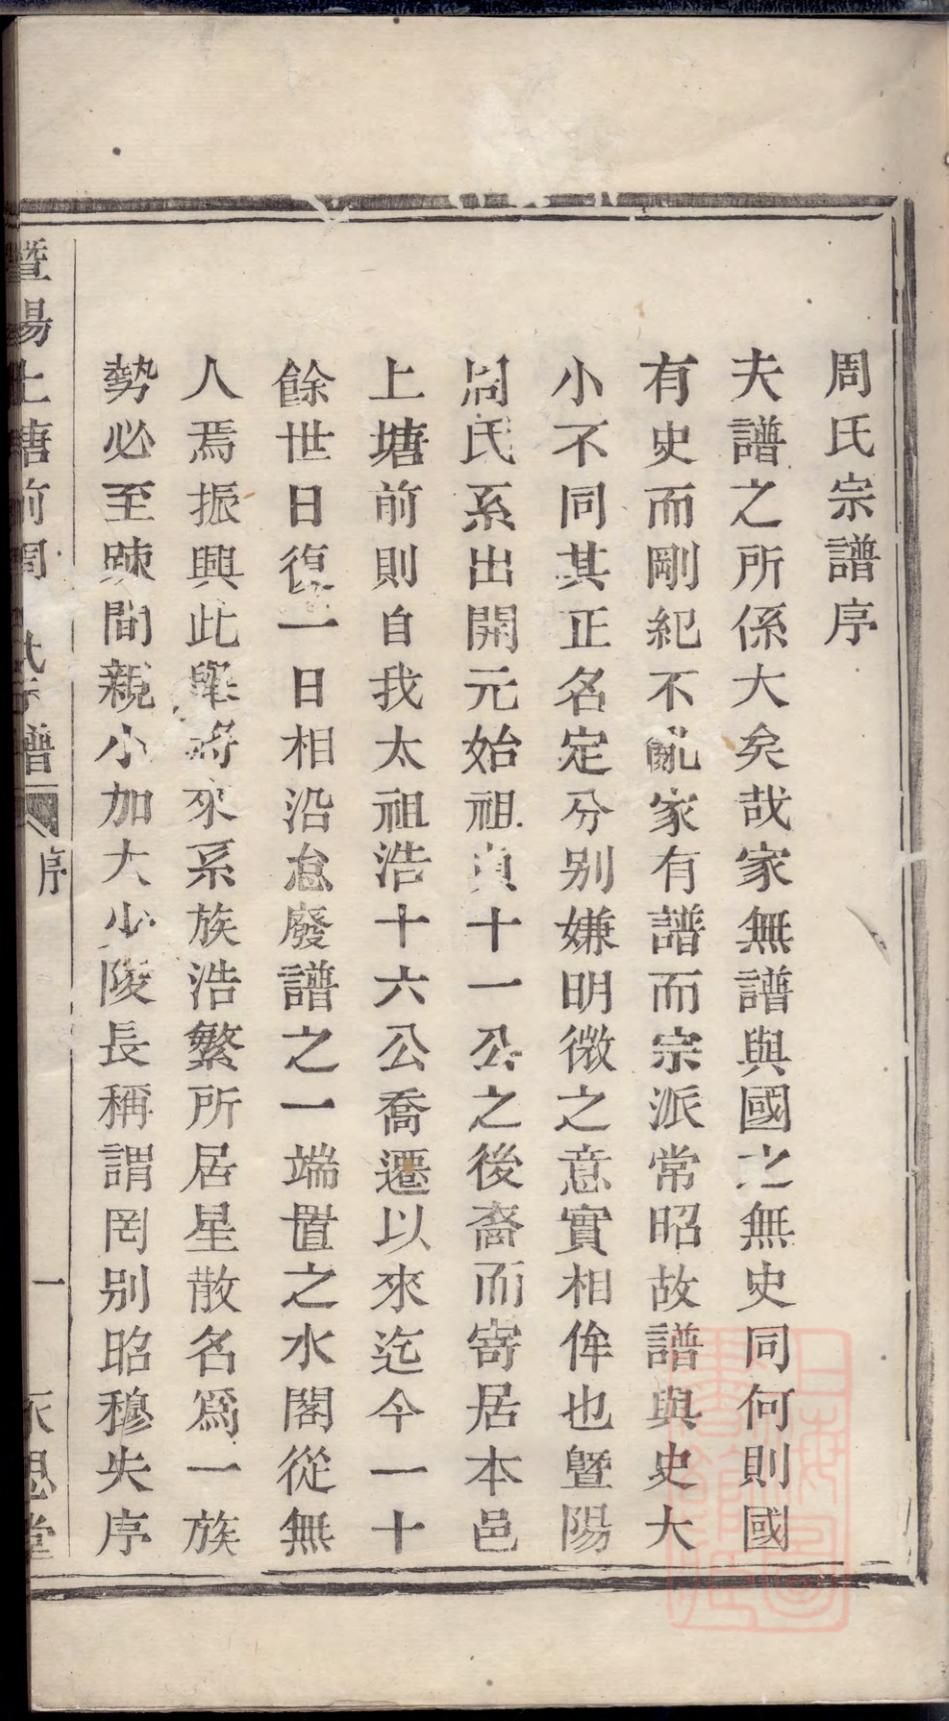 周氏宗譜序
夫譜之所係大矣哉家無譜與國之無史同何則國
有史而剛紀不亂家有譜而宗派常昭故譜與史大
小不同其正名定分别嫌明微之意實相侔也暨陽
周氏系出開元始祖貞十一公之後裔而寄居本邑
上塘前則自我太祖浩十六公喬遷以來迄今一十
餘世日復一日相沿怠廢譜之一端置之水閣從無
人焉振興此舉將來系族浩繁所居星散名爲一族
勢必至踈間親小加大少陵長稱謂罔别昭穆失序
暨陽上塘前周氏宗譜 序 一 思堂
上海圖書館藏